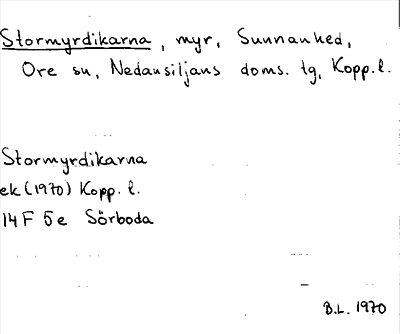 Stormyrdikarna, myr, Sunnanhed,
Ore sn, Nedansiljans doms. tg, Kopp.l.
Stormyrdikarna
ek (1970) Kopp. l.
14 F 5 e Sörboda
B.L. 1970